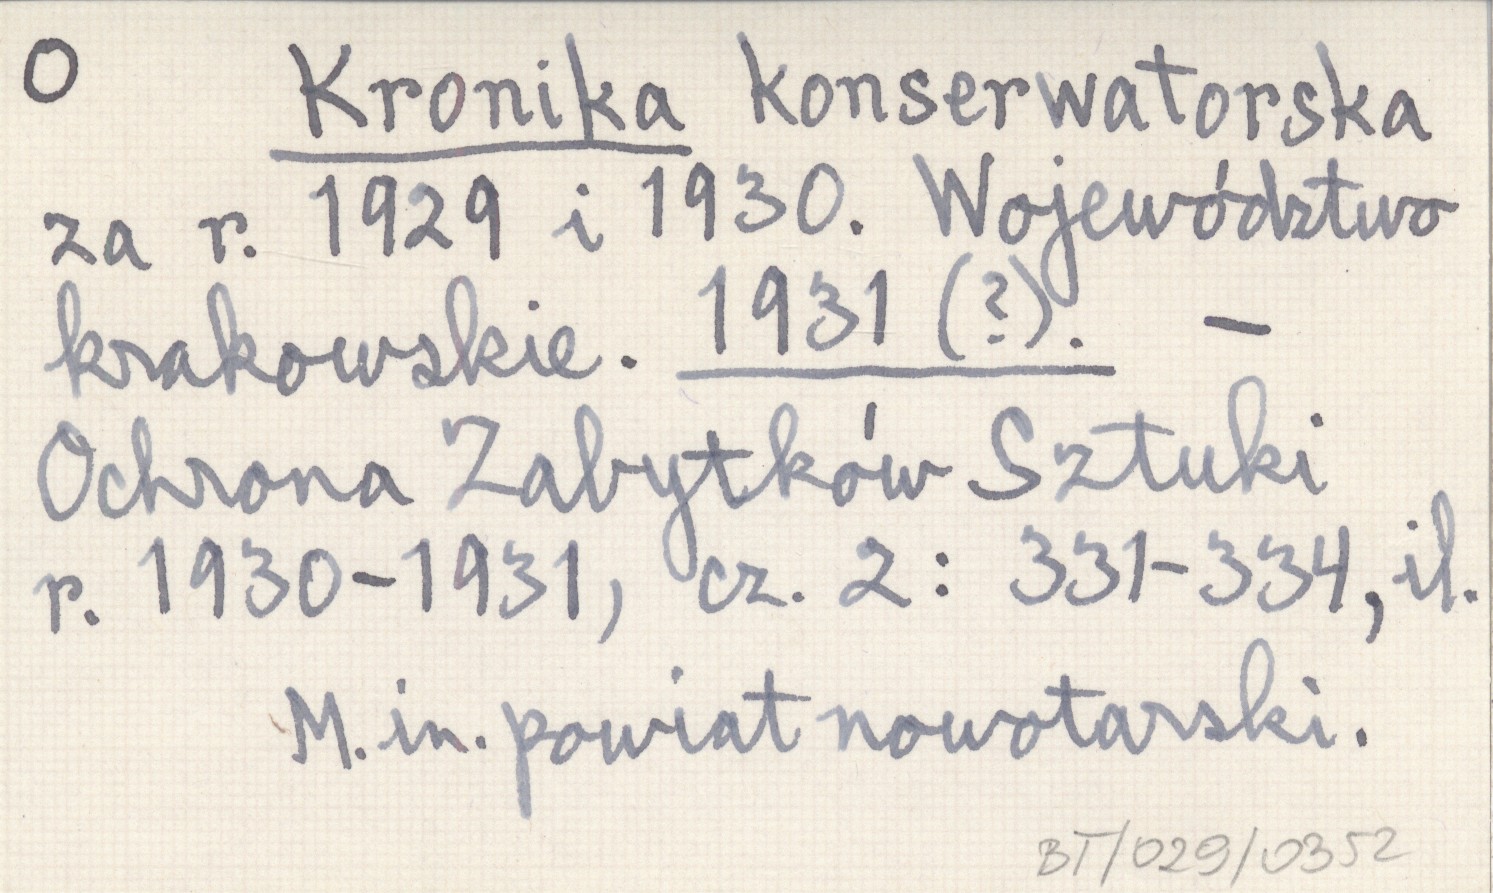 O Kronika konserwatorska
za r. 1929 i 1930. Województwo
krakowskie. 1931 (?). –
Ochrona Zabytków Sztuki
r. 1930-1931, cz. 2: 331-334, il.
M. in. powiat nowotarski.
BT/029/0352